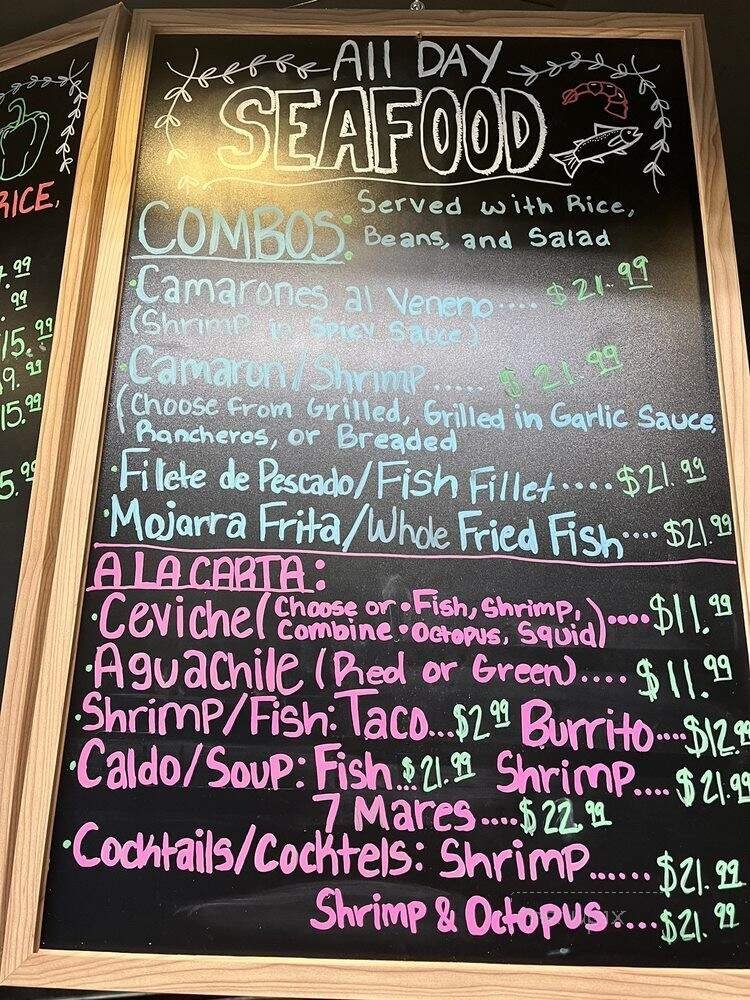 All DAY
SEAFOOD
COMBOS: Served with Rice,
Beans, and Salad
·Camarones al Veneno.... $21.99
(Shrimp in Spicy Sauce)
·Camaron/Shrimp..... $21.99
(Choose from Grilled, Grilled in Garlic Sauce,
Rancheros, or Breaded
·Filete de Pescado/Fish Fillet.....$21.99
·Mojarra Frita/Whole Fried Fish....$21.99
A LA CARTA:
·Ceviche(Choose or •Fish, Shrimp,
Combine •Octopus, Squid)....$11.99
·Aguachile (Red or Green).... $11.99
·Shrimp/Fish: Taco...$2.99 Burrito....$12.99
·Caldo/Soup: Fish...$21.99 Shrimp.... $21.99
7 Mares....$22.99
·Cocktails/Cocktels: Shrimp......$21.99
Shrimp & Octopus....$21.99
RICE,
.99
.99
15.99
9.99
15.99
5.99